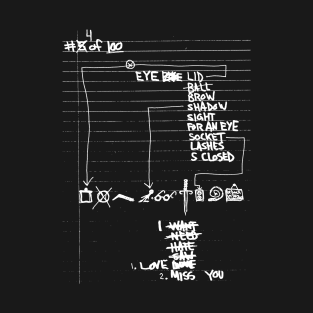 4
# of 100
EYE LID
BALL
BROW
SHADOW
SIGHT
FOR AN EYE
SOCKET
LASHES
S CLOSED
I WANT
NEED
HATE
1. LOVE
2. MISS YOU